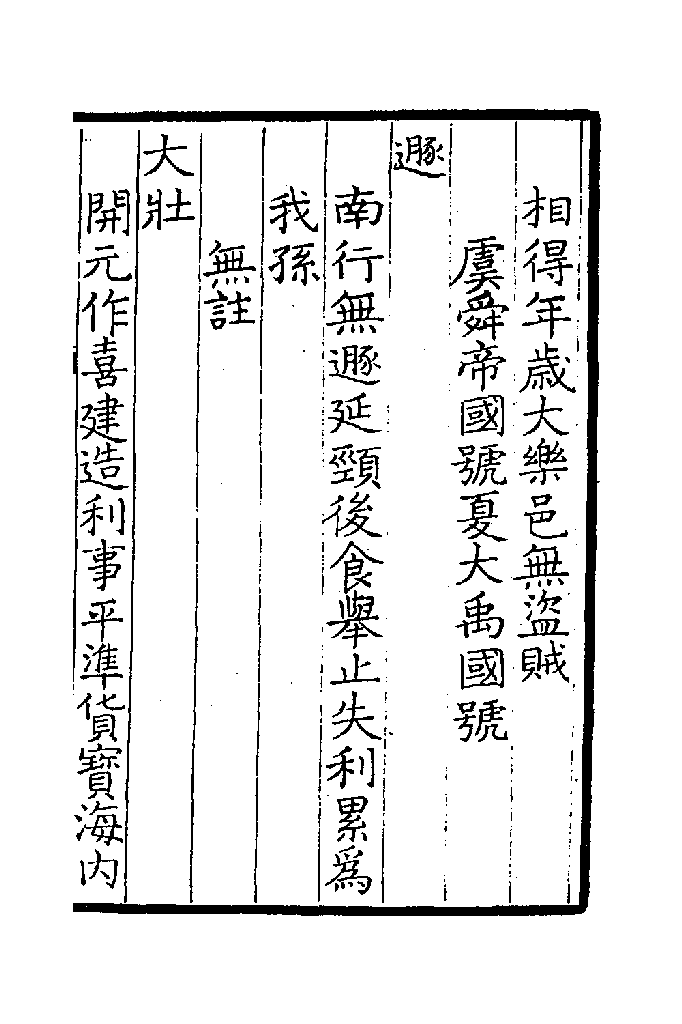 相得年歲大樂邑無盜賊
虞舜帝國號夏大禹國號
遯
南行無遯延頸後食舉止失利累爲
我孫
無註
大壯
開元作喜建造利事平準貨寳海内